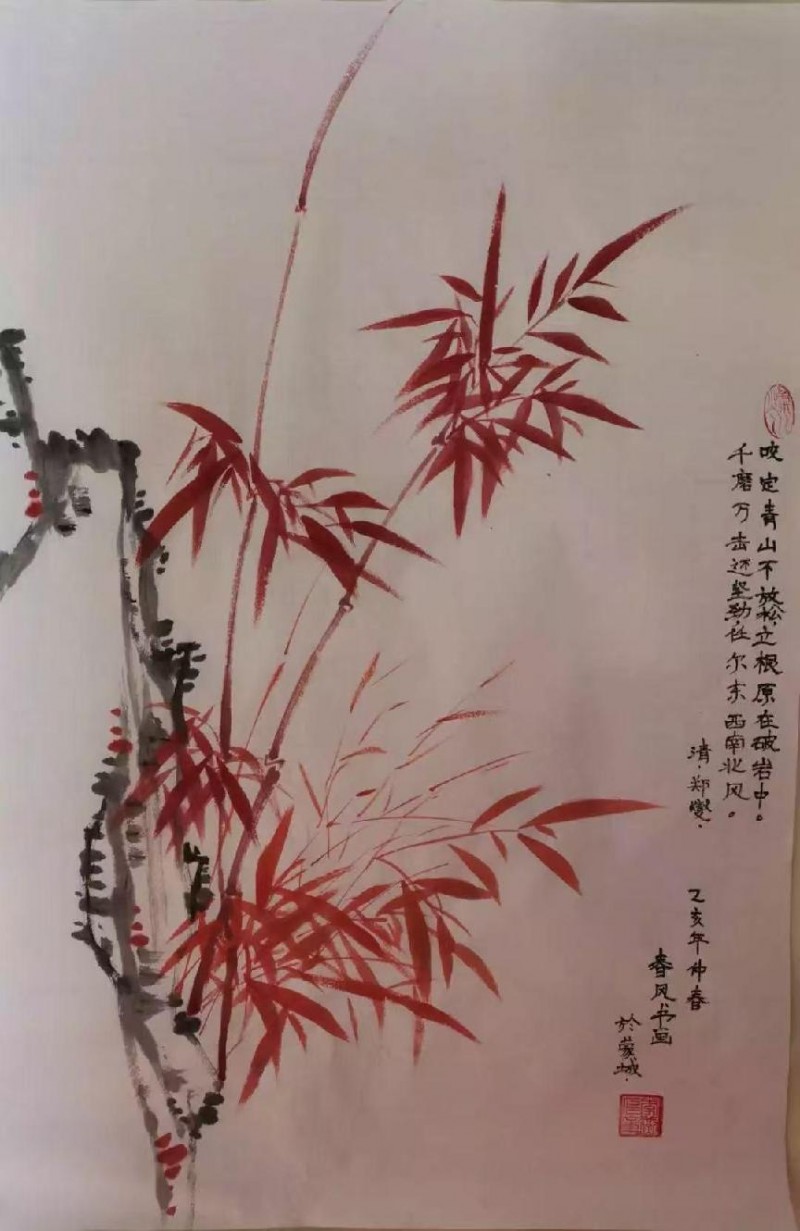 咬定青山不放松,立根原在破岩中。
千磨万击还坚劲,任尔东西南北风。
清·郑燮·
乙亥年仲春
春风书画
於蒙城·